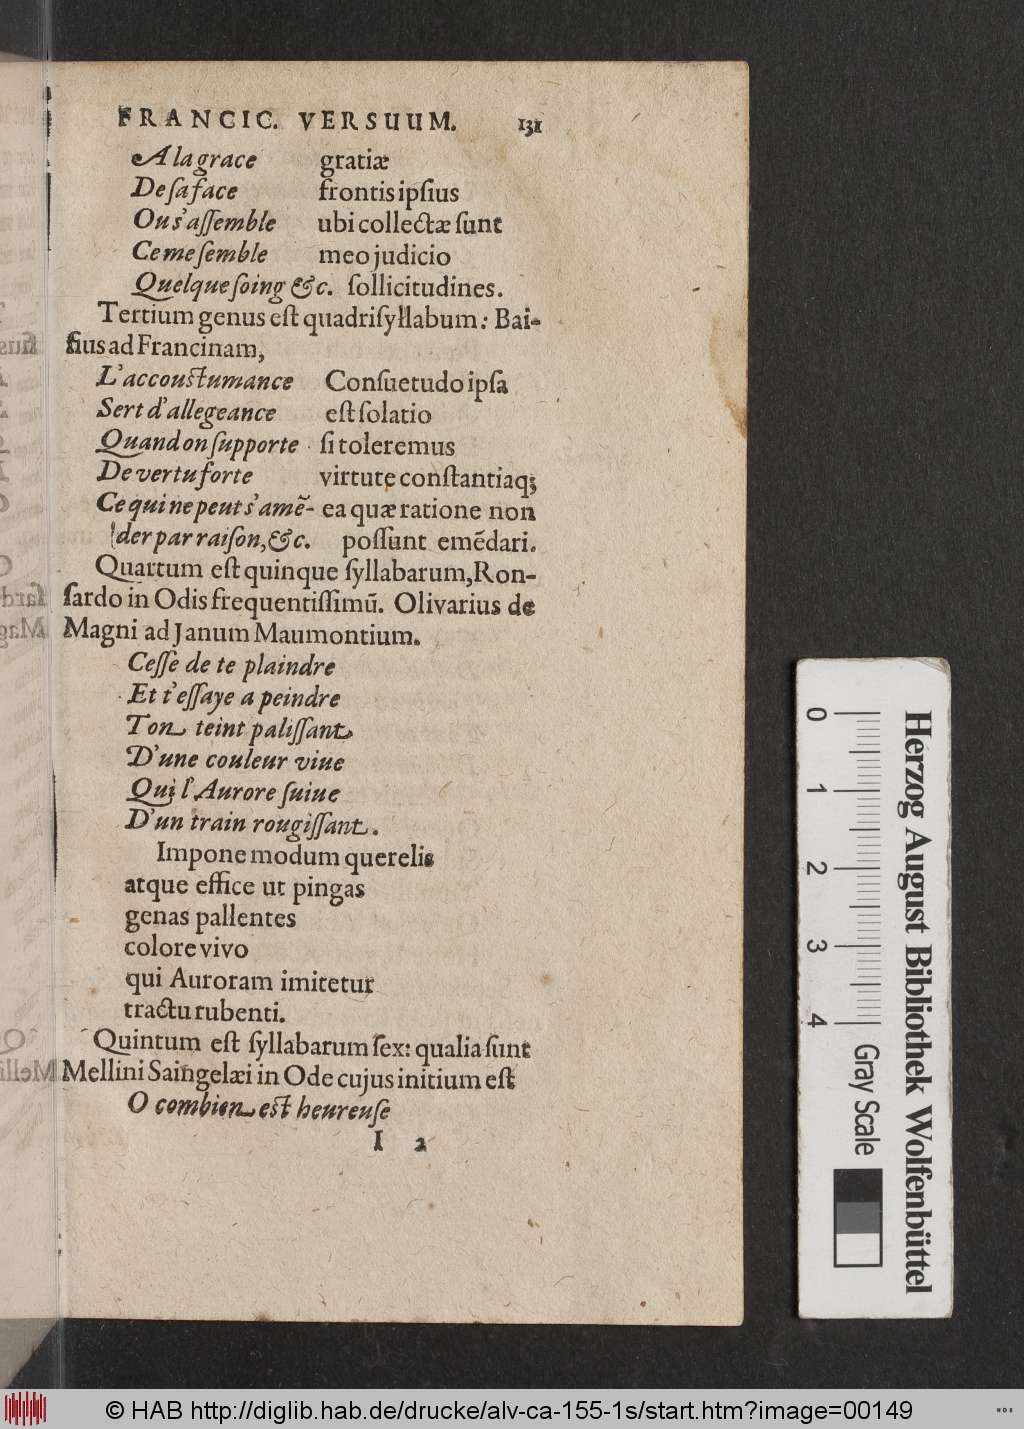 FRANCIC. VERSUUM. 131
A la grace gratiæ
De ſa face frontis ipſius
Ou s'aſſemble ubi collectæ ſunt
Ce me ſemble meo judicio
Quelque ſoing &c. ſollicitudines.
Tertium genus eſt quadriſyllabum: Bai-
fius ad Francinam,
L'accouſtumance Conſuetudo ipſa
Sert d'allegeance eſt ſolatio
Quand on ſupporte ſi toleremus
De vertu forte virtute conſtantiaq;
Ce qui ne peut s'amẽ- ea quæ ratione non
der par raiſon, &c. poſſunt emẽdari.
Quartum eſt quinque ſyllabarum, Ron-
ſardo in Odis frequentiſſimũ. Olivarius de
Magni ad Janum Maumontium.
Ceſſe de te plaindre
Et t'eſſaye a peindre
Ton teint paliſſant
D'une couleur viue
Qui l'Aurore ſuiue
D'un train rougiſſant.
Impone modum querelis
atque effice ut pingas
genas pallentes
colore vivo
qui Auroram imitetur
tractu rubenti.
Quintum eſt ſyllabarum ſex: qualia ſunt
Mellini Saingelæi in Ode cujus initium eſt
O combien eſt heureuſe
I 2
0 1 2 3 4 Gray Scale
Herzog August Bibliothek Wolfenbüttel
© HAB http://diglib.hab.de/drucke/alv-ca-155-1s/start.htm?image=00149